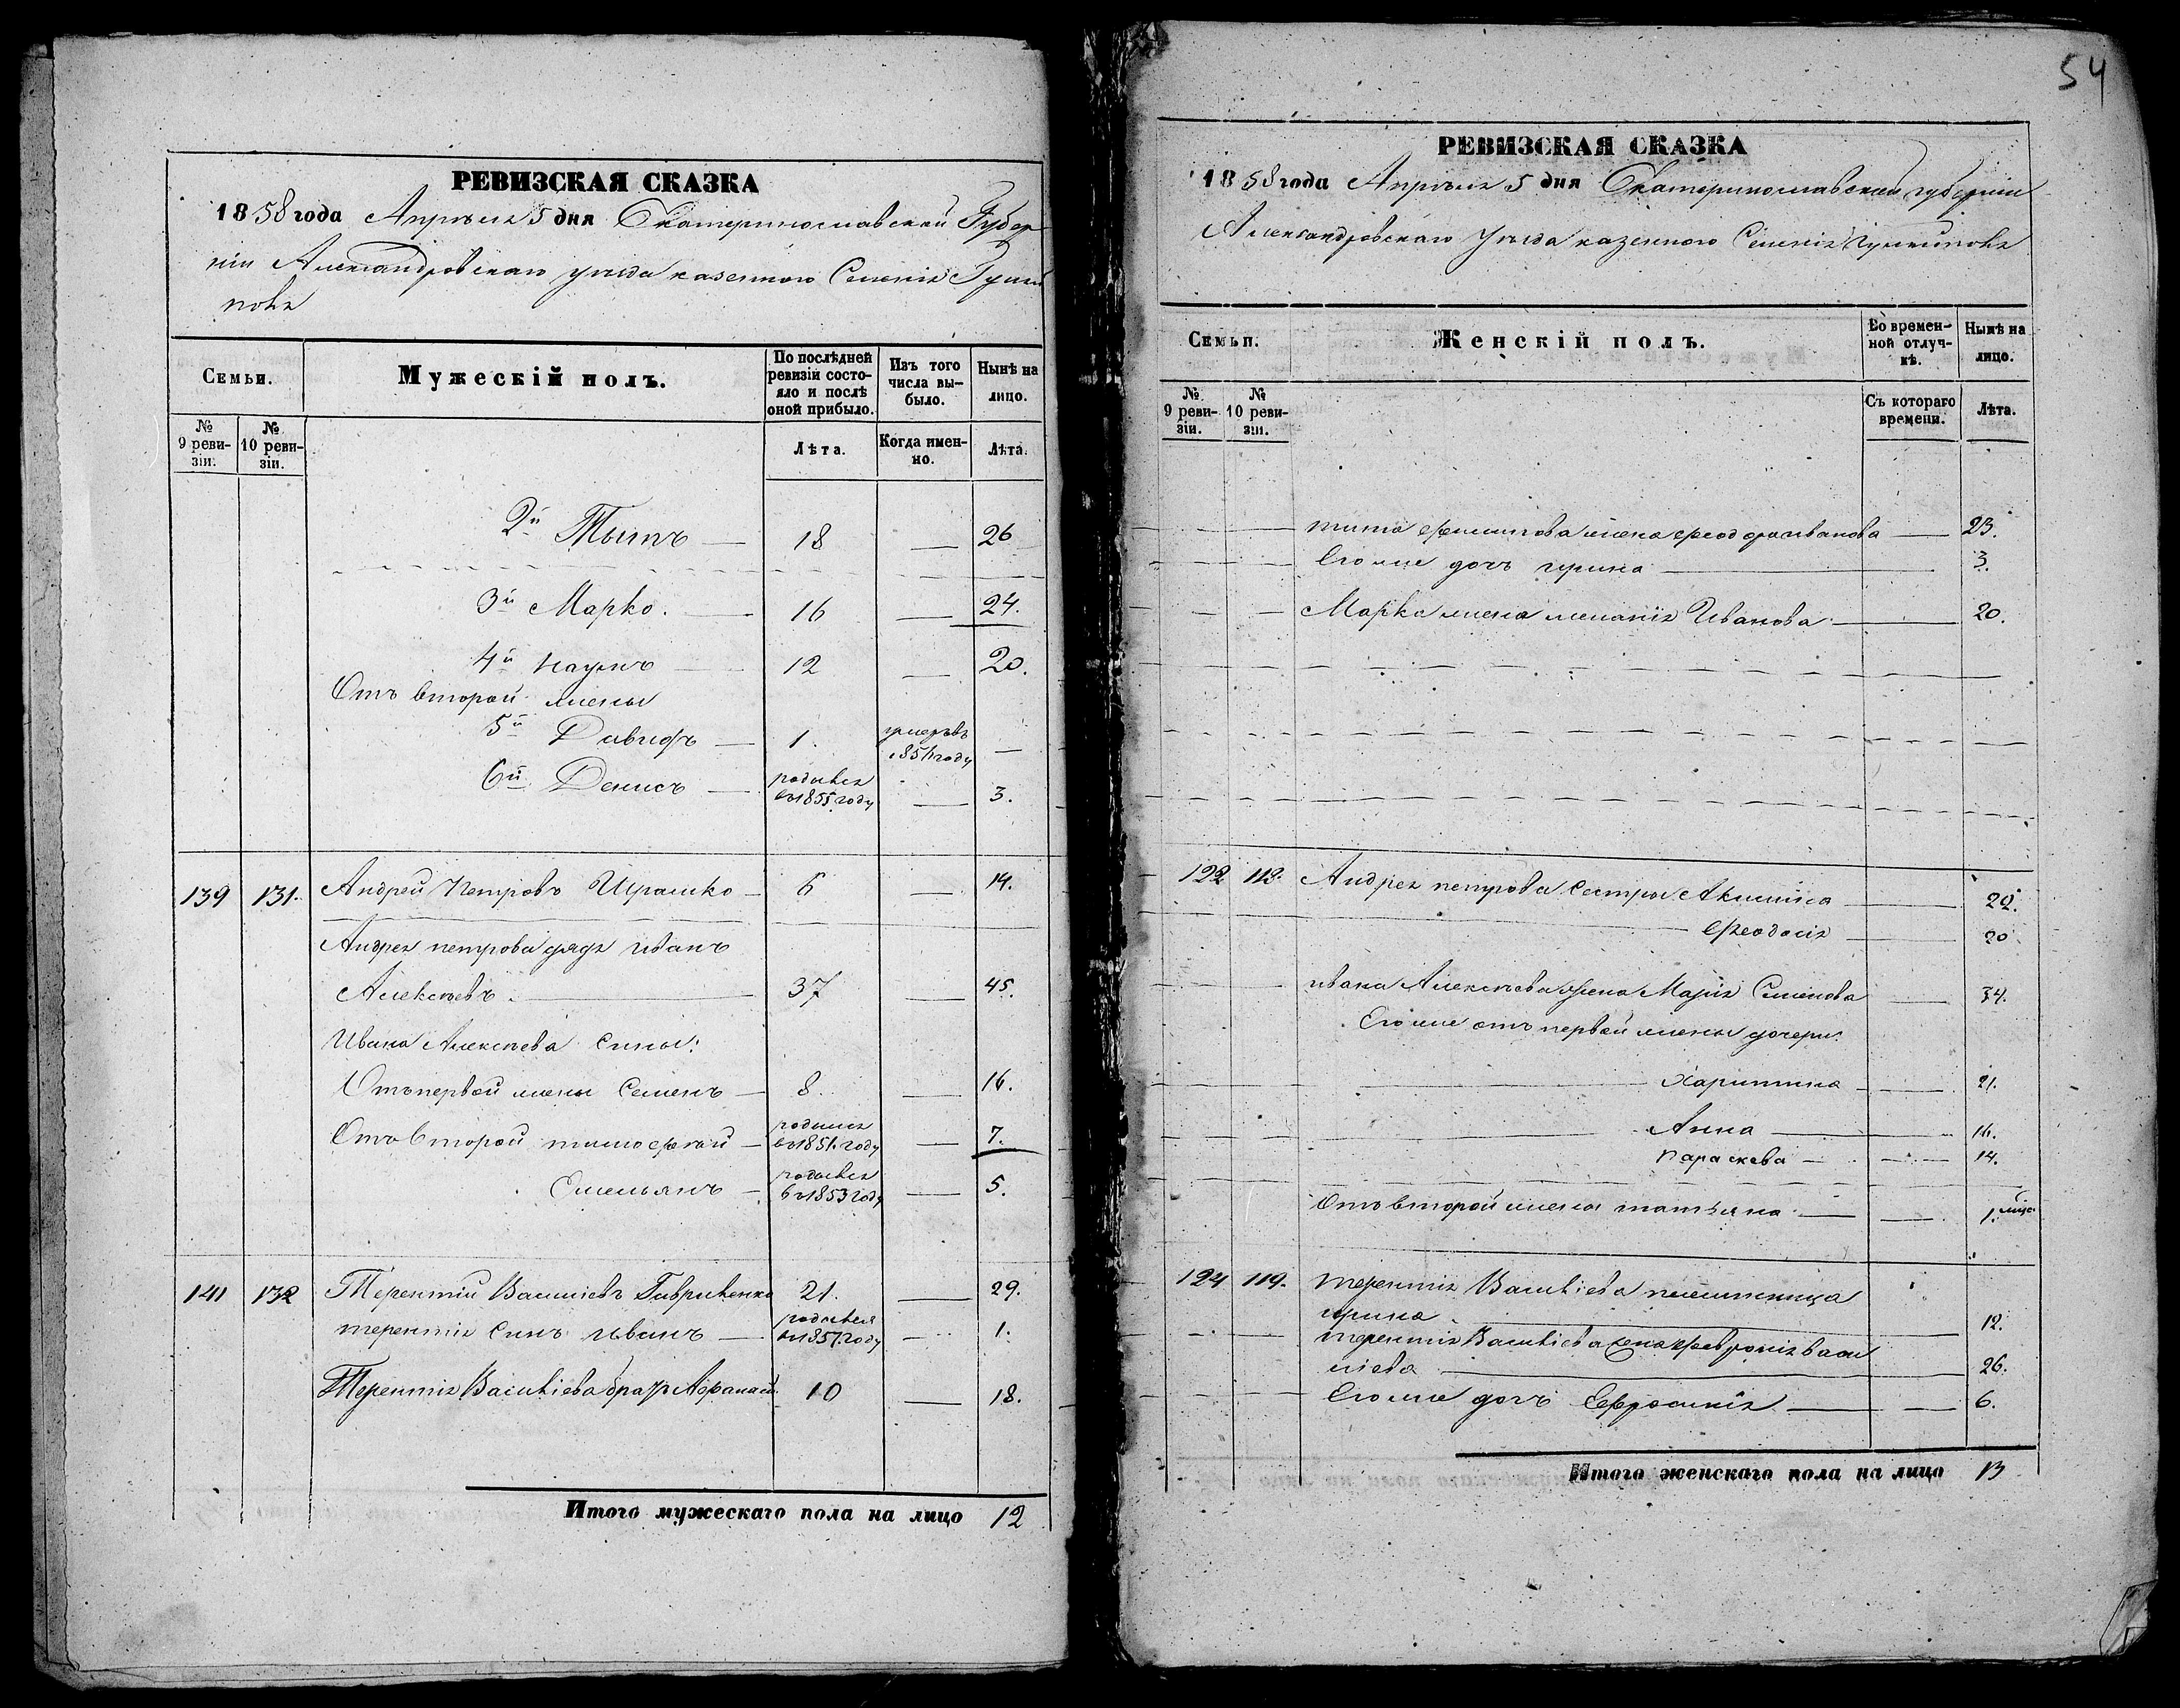 РЕВИЗСКАЯ СКАЗКА
1858 года Апреля 5 дня Екатеринославской Губер
ніи Александровскаго уезда казенного Селенія Гуляй
поля
Семьи.
Мужескій полъ.
По послѣдней ревизіи состояло и послѣ оной прибыло.
Изъ того числа выбыло.
Нынѣ на лицо.
№ 9 ревизіи.
№ 10 ревизіи.
Лѣта.
Когда именно.
Лѣта.
2й Тытъ 18 — 26
3й Марко. 16 — 24.
4й Наумъ 12 — 20.
Отъ второй жены
5й Давидъ 1. умеръ въ 1851 году —
6й Денисъ родився въ 1855 году — 3.
139 131. Андрей Петровъ 6 — 14.
Андрея петрова дядя иванъ
Алексѣевъ. 37 — 45.
Ивана Алексѣева Сины:
Отъ первой жены Семенъ — 8. — 16.
Отъ второй тимофѣй — родился въ 1851 году — 7.
Емельянъ — родився въ 1853 году — 5.
141 132 Терентій Василіевъ Гавриленко 21. — 29.
терентія Синъ иванъ — родився въ 1857 году — 1.
Терентія Василіева братъ Афанасій 10 — 18.
Итого мужескаго пола на лицо 12
54
РЕВИЗСКАЯ СКАЗКА
1858 года Апреля 5 дня Екатеринославской губерніи
Александровскаго Уезда казенного Селенія Гуляйполя
Семьи.
Женскій полъ.
Во временной отлучкѣ.
Нынѣ на лицо.
№ 9 ревизіи.
№ 10 ревизіи.
Съ котораго времени.
Лѣта.
тита филипова жена феодора иванова — 23.
Его же дочъ ирина — 3.
Марка жена меланія Иванова — 20.
122 118. Андрея петрова Сестры Акилина — 22.
Феодосія — 20
ивана Алексѣева жена Марія Семенова — 34.
Его же отъ первой жены дочери:
Харитина — 21.
Анна — 16.
Параскева — 14.
Отъ второй жены татьяна — 1.
124 119. терентія Василіева племяница
ирина — 12.
терентія Василіева жена феврониія васи
ліева — 26.
Его же дочъ Ефросинія — 6.
Итого женскаго пола на лицо 13